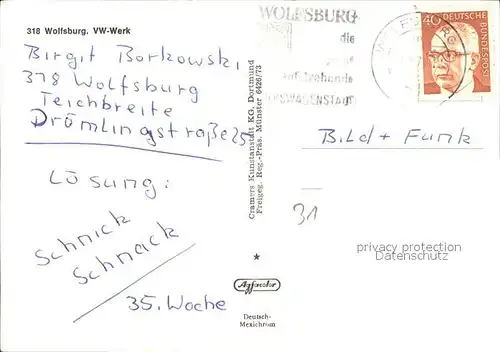 318 Wolfsburg. VW-Werk
Birgit Borkowski,
318 Wolfsburg
Teichbreite
Drömlingstraße 25
Lösung:
Schnick
Schnack
35. Woche
Cramers Kunstanstalt KG, Dortmund
Freigeg. Reg.-Präs. Münster 6426/73
Agfacolor
Deutsch-
Mexichrom
WOLFSBURG
die
40
DEUTSCHE
BUNDESPOST
Bild + Funk
31
privacy protection
Datenschutz